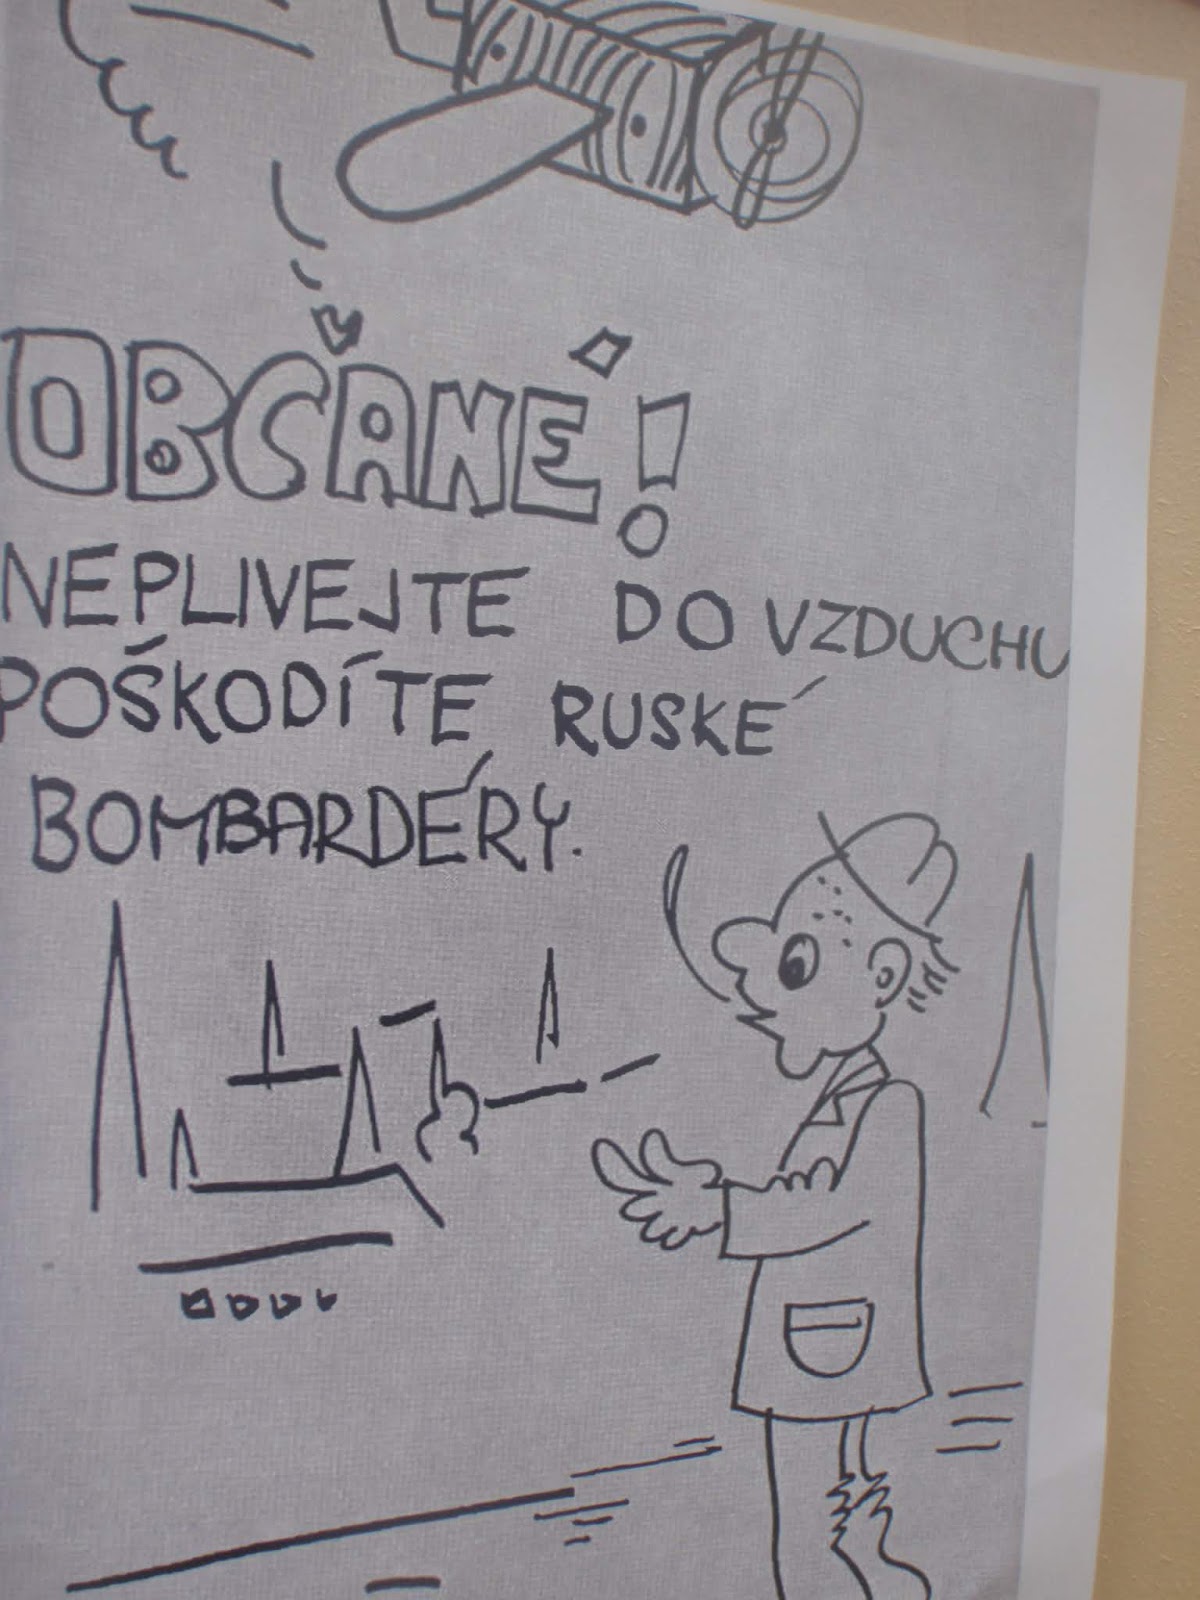 OBČANÉ!
NEPLIVEJTE DO VZDUCHU
POŠKODÍTE RUSKÉ
BOMBARDÉRY.